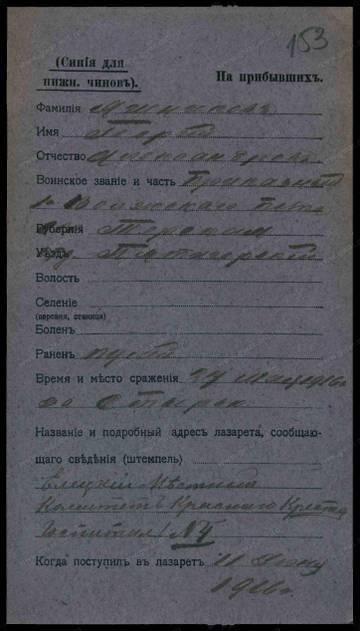 153
(Синія для
нижн. чиновъ).
На прибывшихъ.
Фамилія
Имя
Отчество Александровъ
Воинское званіе и часть Приказный
1 Волжскаго полка
Губернія Терской
Уѣздъ Пятигорскій
Волость
Селеніе
(деревня, станица)
Боленъ
Раненъ пулей
Время и мѣсто сраженія 24 1916
Названіе и подробный адресъ лазарета, сообщаю-
щаго свѣдѣнія (штемпель)
Елецкій Мѣстный
Комитетъ Краснаго Креста
Госпиталь №
Когда поступилъ въ лазаретъ 11
1916 г.